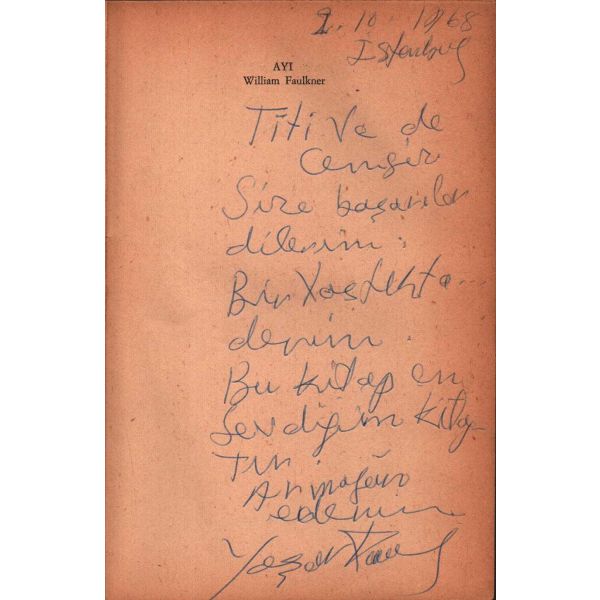 2.10.1968
Istanbul
AYI
William Faulkner
Titi Ve de
Cengiz
Size başarılar
dilerim.
Bir Yastıkta...
derim.
Bu kitap en
Sevdiğim Kitap
Tır.
Armağan
ederim
Yaşar Kemal